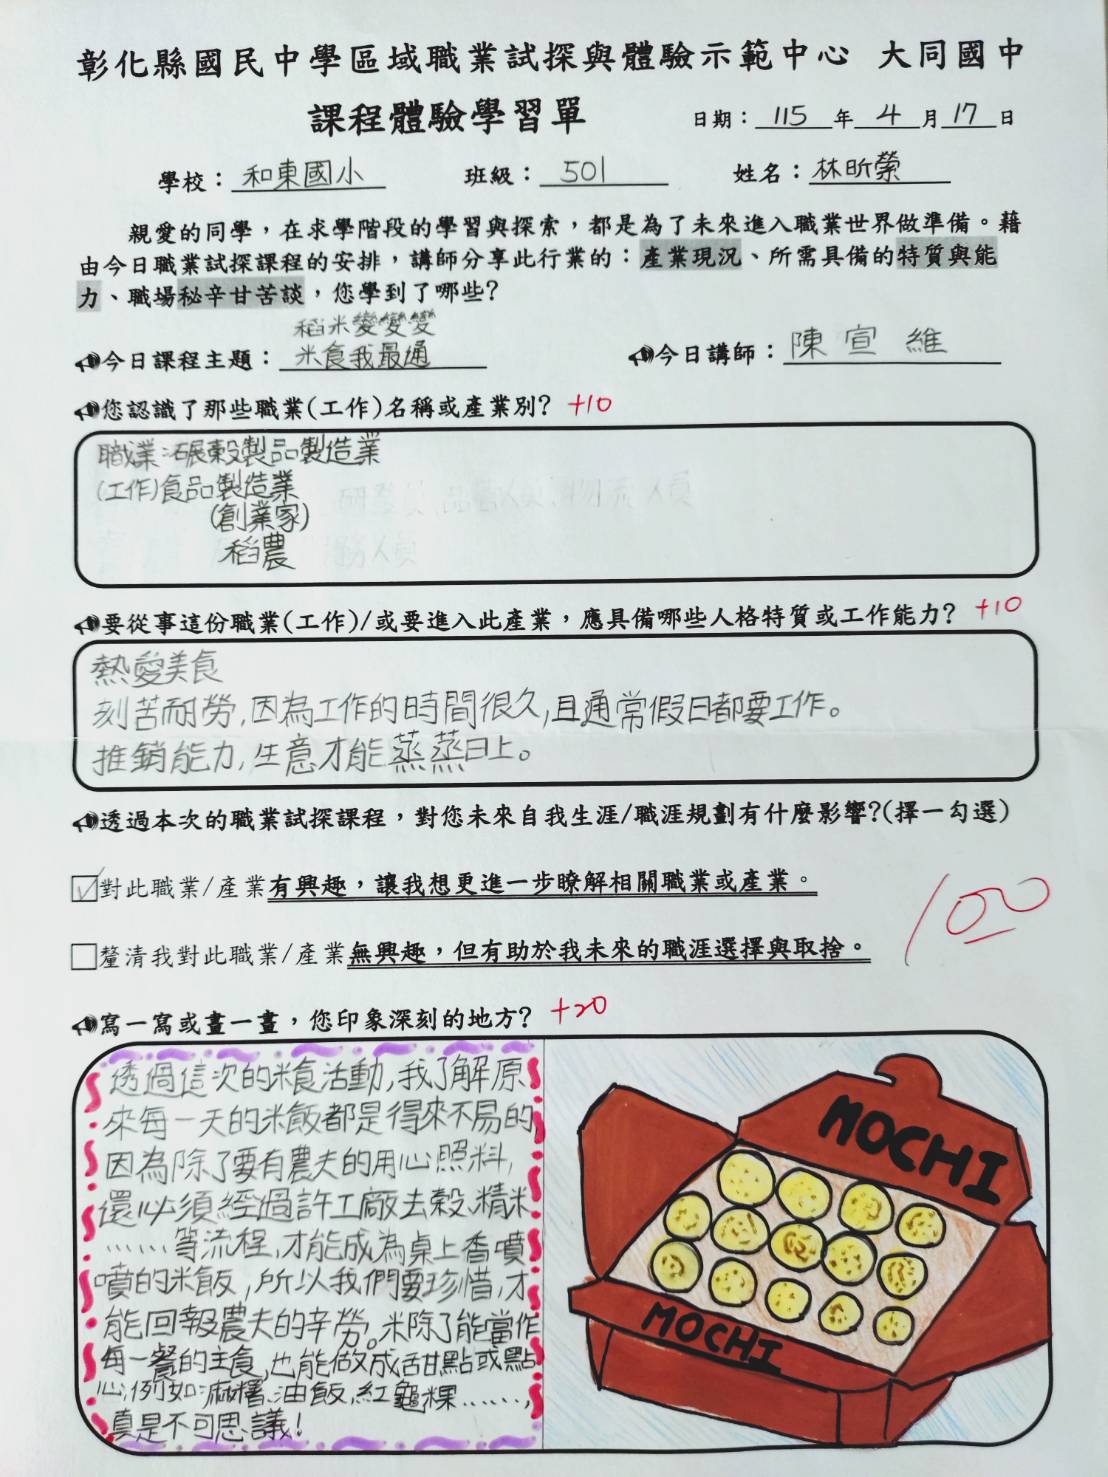 彰化縣國民中學區域職業試探與體驗示範中心 大同國中
課程體驗學習單
日期：115年4月17日
學校：和東國小 班級：501 姓名：林昕縈
親愛的同學，在求學階段的學習與探索，都是為了未來進入職業世界做準備。藉
由今日職業試探課程的安排，講師分享此行業的：產業現況、所需具備的特質與能
力、職場秘辛甘苦談，您學到了哪些?
稻米變變變
今日課程主題：米食我最通 今日講師：陳宣維
您認識了那些職業(工作)名稱或產業別? +10
職業:碾穀製品製造業
(工作)食品製造業
(創業家)
稻農
要從事這份職業(工作)/或要進入此產業，應具備哪些人格特質或工作能力? +10
熱愛美食
刻苦耐勞,因為工作的時間很久,且通常假日都要工作。
推銷能力,生意才能蒸蒸日上。
透過本次的職業試探課程，對您未來自我生涯/職涯規劃有什麼影響?(擇一勾選)
☑對此職業/產業有興趣，讓我想更進一步瞭解相關職業或產業。
100
☐釐清我對此職業/產業無興趣，但有助於我未來的職涯選擇與取捨。
寫一寫或畫一畫，您印象深刻的地方? +20
透過這次的米食活動,我了解原
來每一天的米飯都是得來不易的,
因為除了要有農夫的用心照料,
還必須經過許工廠去穀、精米
……等流程,才能成為桌上香噴
噴的米飯,所以我們要珍惜,才
能回報農夫的辛勞。米除了能當作
每一餐的主食,也能做成甜點或點
心,例如:麻糬、油飯、紅龜粿……,
真是不可思議!
MOCHI
MOCHI